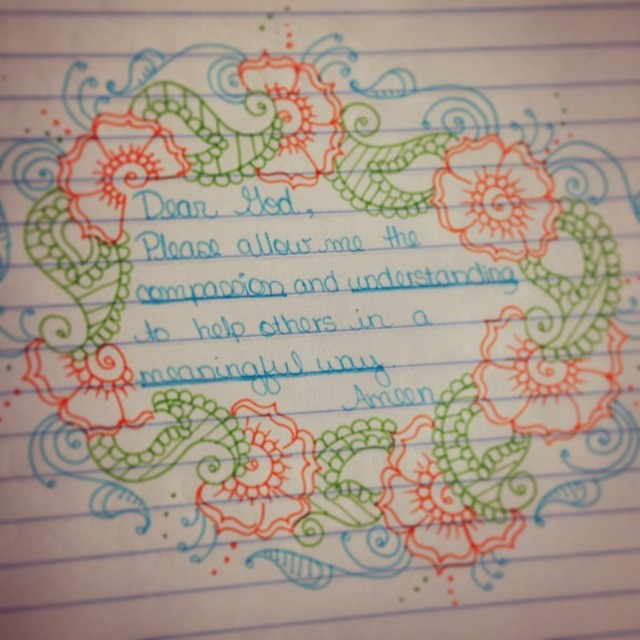 Dear God,
Please allow me the
compassion and understanding
to help others in a
meaningful way.
Ameen